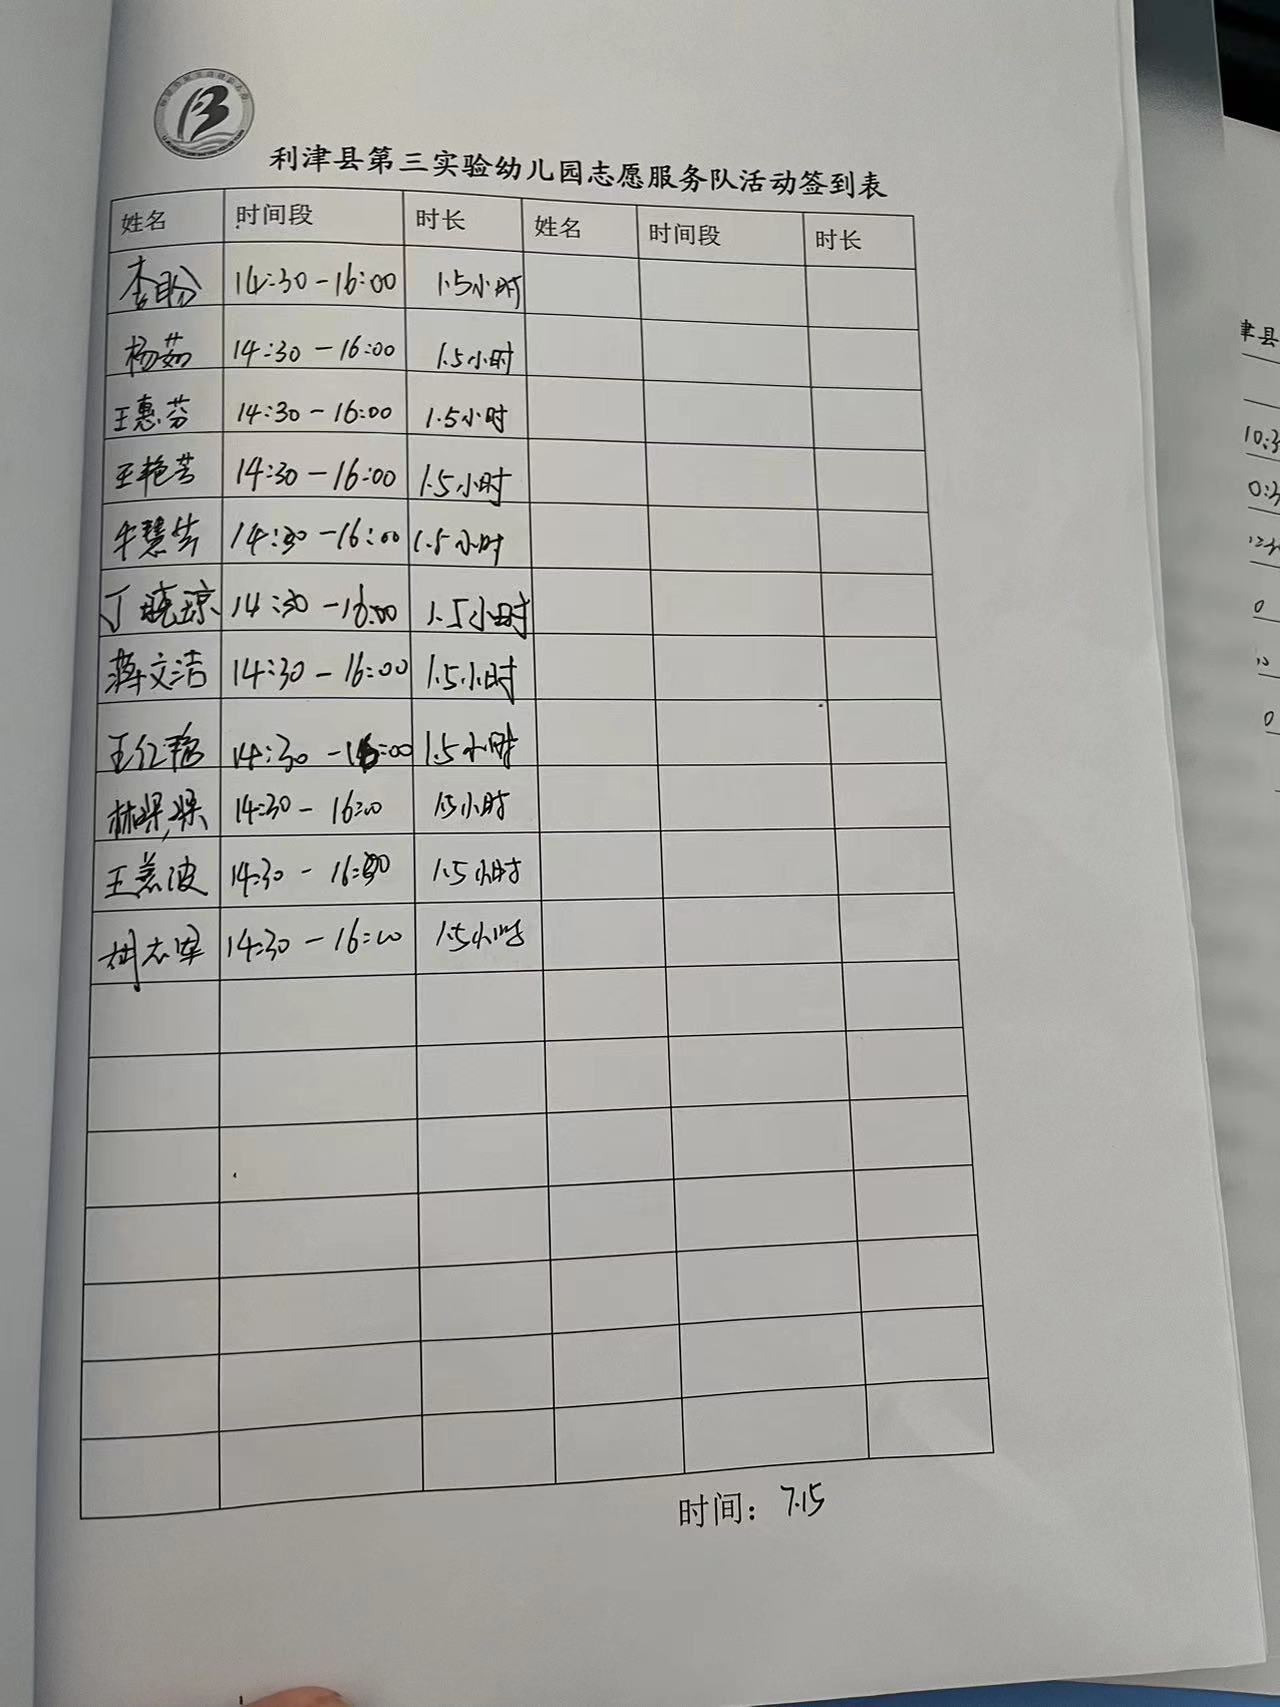 利津县第三实验幼儿园志愿服务队活动签到表
姓名 时间段 时长 姓名 时间段 时长
李盼 14:30-16:00 1.5小时
杨茹 14:30-16:00 1.5小时
王惠芬 14:30-16:00 1.5小时
王艳芳 14:30-16:00 1.5小时
牛慧芳 14:30-16:00 1.5小时
丁晓琼 14:30-16:00 1.5小时
蒋文洁 14:30-16:00 1.5小时
王红艳 14:30-16:00 1.5小时
林 14:30-16:00 1.5小时
王 波 14:30-16:00 1.5小时
志军 14:30-16:00 1.5小时
时间：7.15
津县